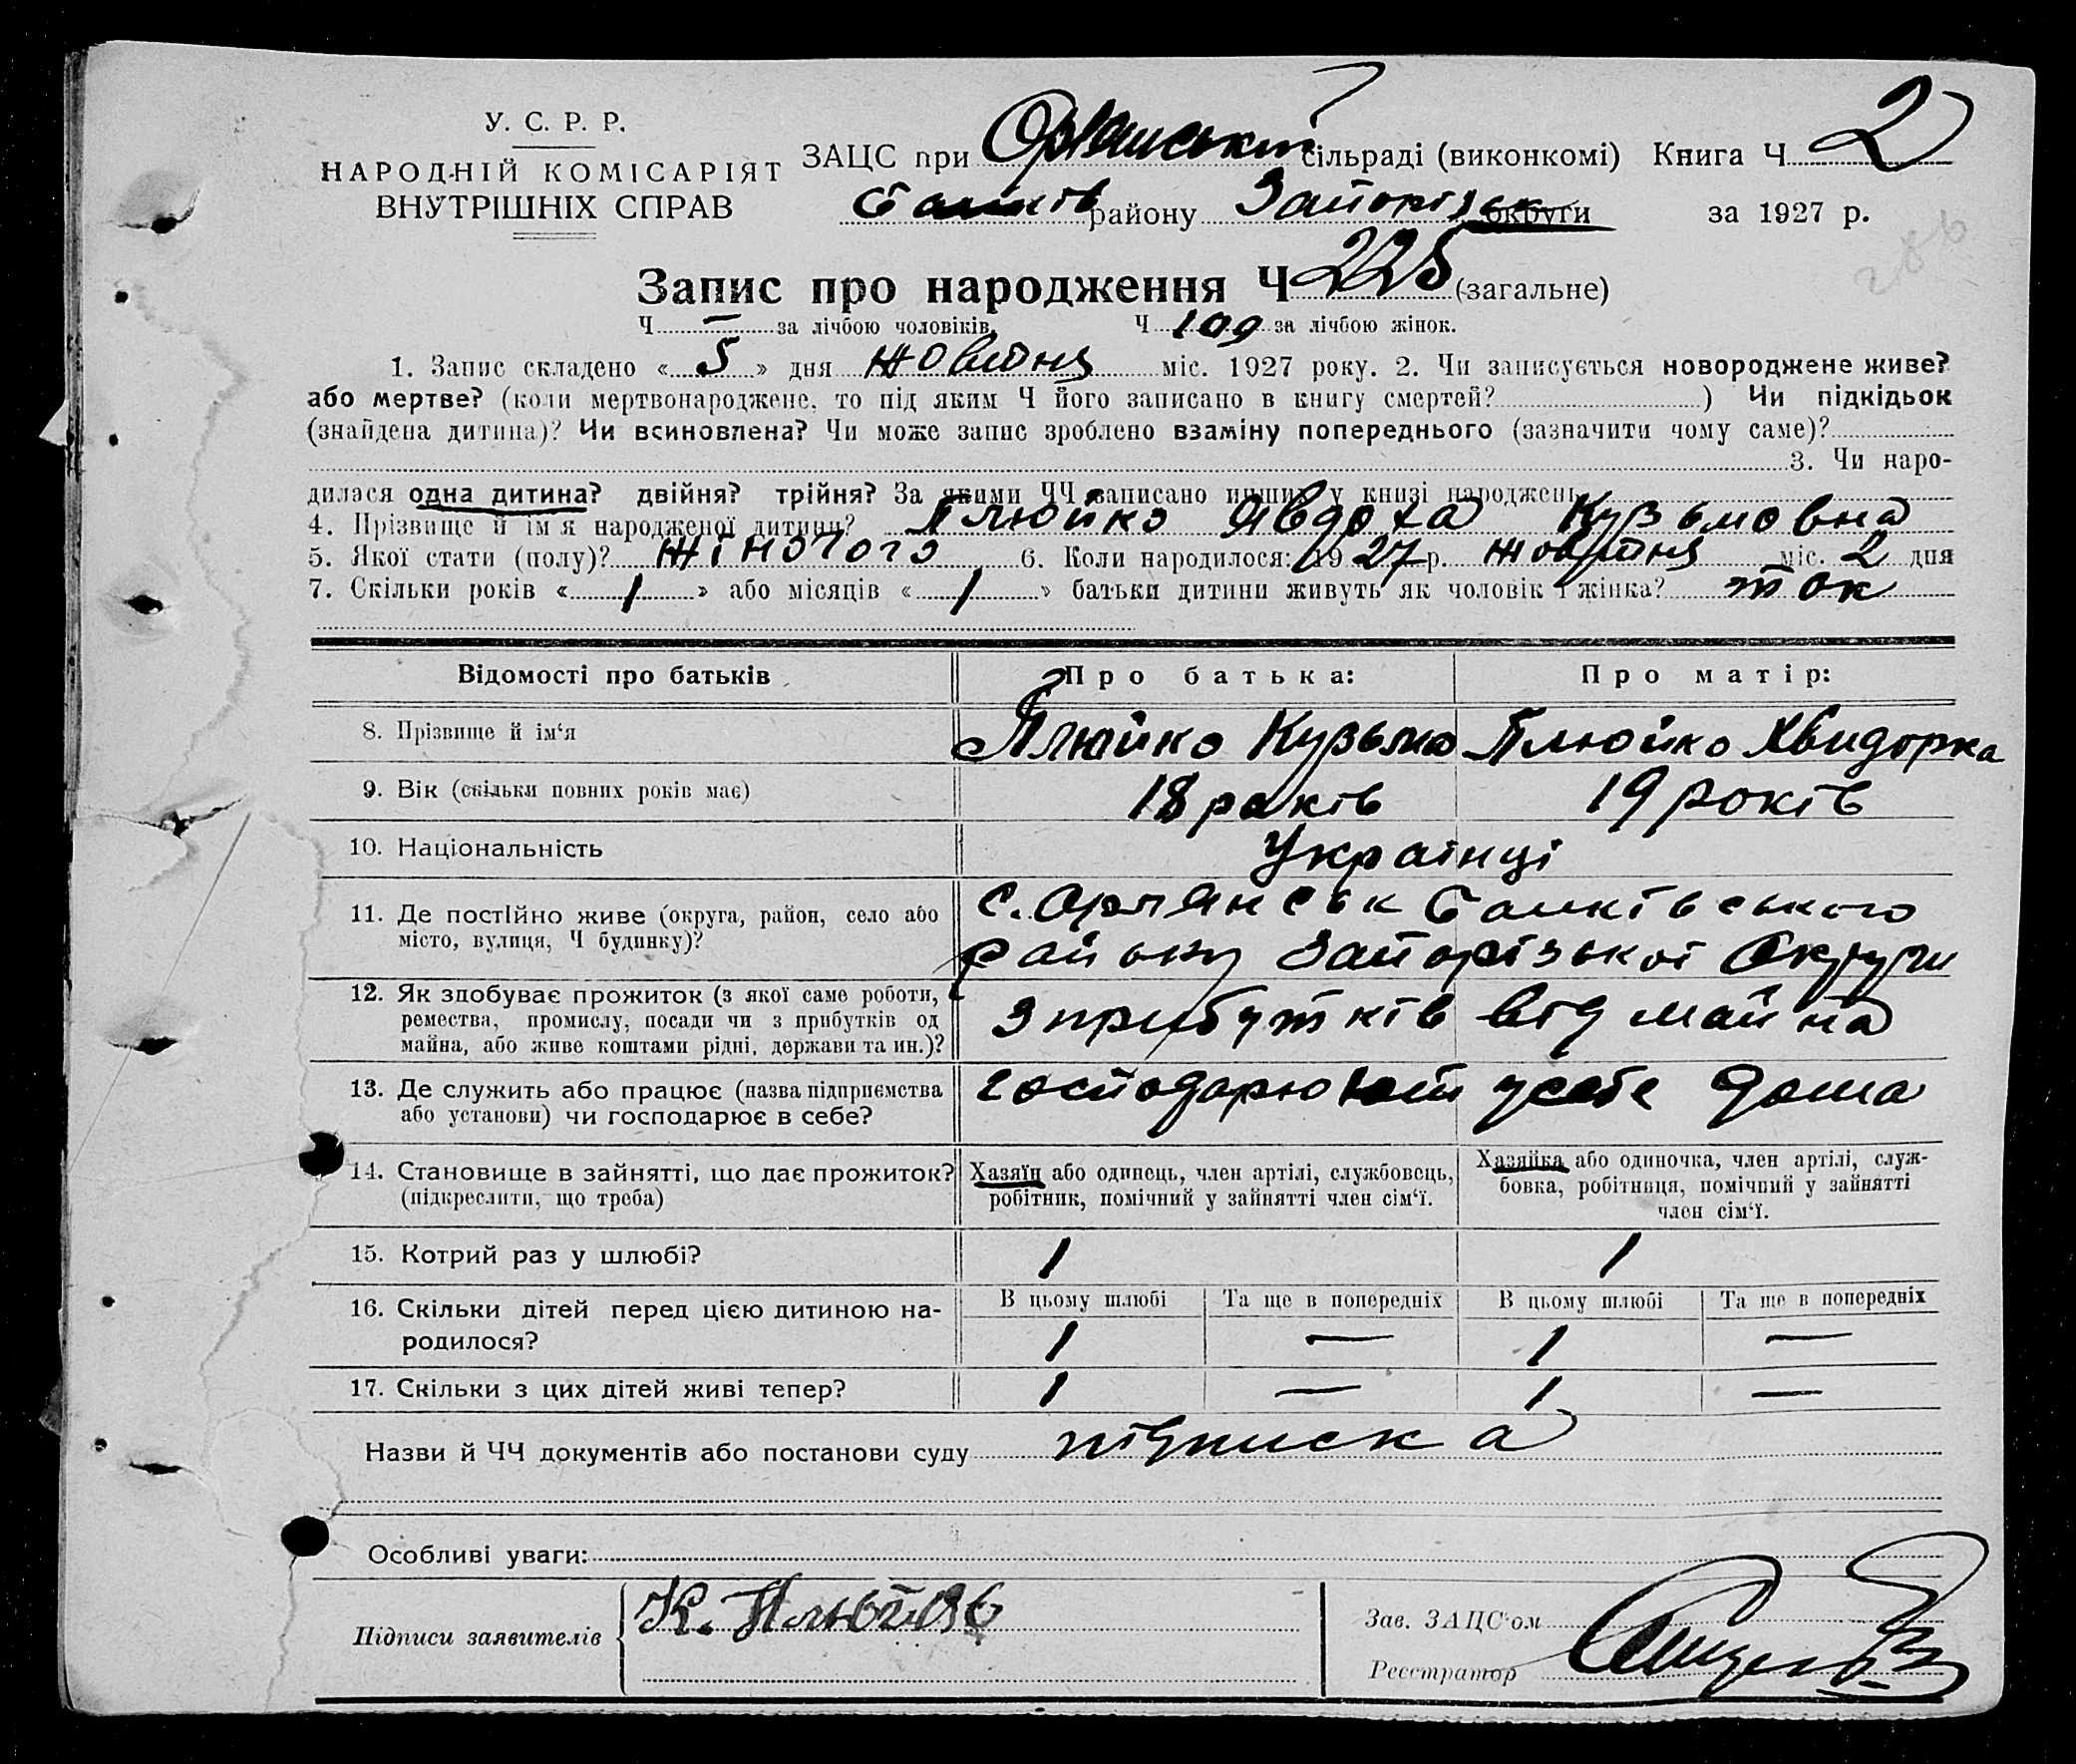 У. С. Р. Р.
НАРОДНІЙ КОМІСАРІЯТ
ВНУТРІШНІХ СПРАВ
ЗАЦС при Орлянській сільраді (виконкомі) Книга Ч 2
району Запорізьк округи за 1927 р.
Запис про народження Ч 225 (загальне)
Ч — за лічбою чоловіків. Ч 109 за лічбою жінок.
1. Запис складено « 5 » дня жовтня міс. 1927 року. 2. Чи записується новороджене живе?
або мертве? (коли мертвонароджене, то під яким Ч його записано в книгу смертей? ) Чи підкідьок
(знайдена дитина)? Чи всиновлена? Чи може запис зроблено взаміну попереднього (зазначити чому саме)?
3. Чи наро-
дилася одна дитина? двійня? трійня? За якими ЧЧ записано инших у книзі народжень
4. Прізвище й ім'я народженої дитини? Плюйко Явдоха Кузьмовна
5. Якої стати (полу)? жіночого 6. Коли народилося: 1927 р. жовтня міс. 2 дня
7. Скільки років « / » або місяців « / » батьки дитини живуть як чоловік і жінка? так
Відомості про батьків Про батька: Про матір:
8. Прізвище й ім'я Плюйко Кузьма Плюйко Хвидорка
9. Вік (скільки повних років має) 18 років 19 років
10. Національність Українці
11. Де постійно живе (округа, район, село або
місто, вулиця, Ч будинку)?
с. Орлянськ
району Запорізької Округи
12. Як здобуває прожиток (з якої саме роботи,
ремества, промислу, посади чи з прибутків од
майна, або живе коштами рідні, держави та ин.)?
з прибутків від майна
13. Де служить або працює (назва підприємства
або установи) чи господарює в себе?
господарюють у себе дома
14. Становище в зайнятті, що дає прожиток?
(підкреслити, що треба)
Хазяїн або одинець, член артілі, службовець,
робітник, помічний у зайнятті член сім'ї.
Хазяйка або одиночка, член артілі, служ-
бовка, робітниця, помічний у зайнятті
член сім'ї.
15. Котрий раз у шлюбі? 1 1
16. Скільки дітей перед цією дитиною на-
родилося?
В цьому шлюбі Та ще в попередніх В цьому шлюбі Та ще в попередніх
1 — 1 —
17. Скільки з цих дітей живі тепер? 1 — 1 —
Назви й ЧЧ документів або постанови суду підписка
Особливі уваги:
Підписи заявителів К. Плюйко
Зав. ЗАЦС'ом
Реєстратор